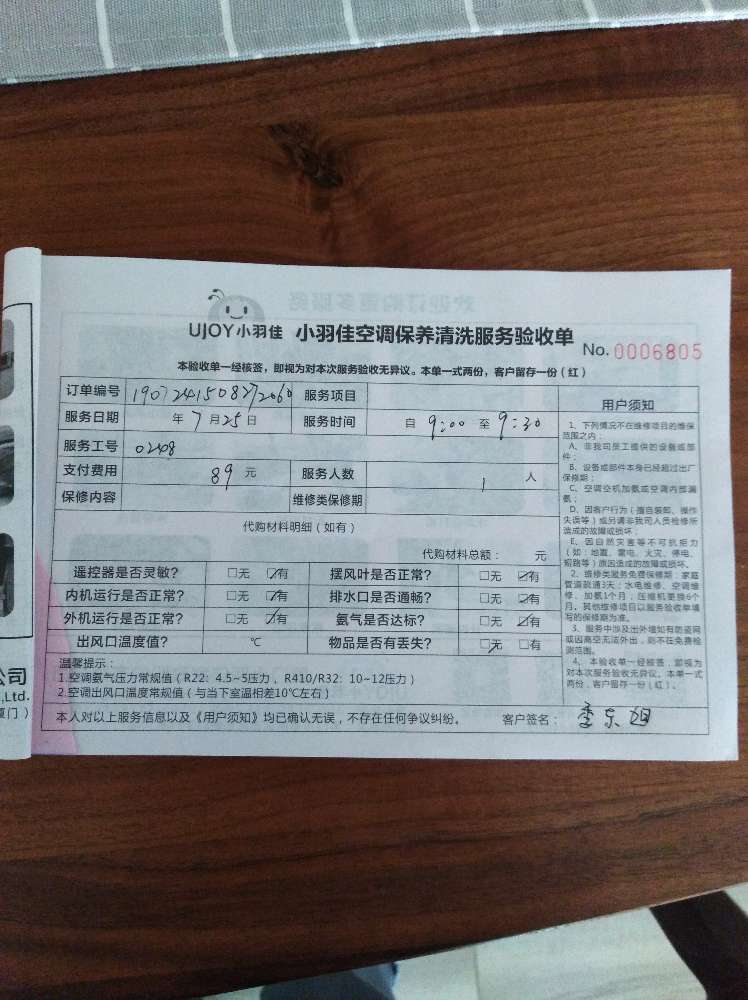 UJOY小羽佳 小羽佳空调保养清洗服务验收单
No. 0006805
本验收单一经核签，即视为对本次服务验收无异议。本单一式两份，客户留存一份（红）
订单编号 服务项目
服务日期 年7月25日 服务时间 自9:00至9:30
服务工号 0248
支付费用 89元 服务人数 1人
保修内容 维修类保修期
代购材料明细（如有）
代购材料总额： 元
遥控器是否灵敏？ □无 ☑有 摆风叶是否正常？ □无 ☑有
内机运行是否正常？ □无 ☑有 排水口是否通畅？ □无 ☑有
外机运行是否正常？ □无 ☑有 氨气是否达标？ □无 ☑有
出风口温度值？ ℃ 物品是否有丢失？ ☑无 □有
温馨提示：
1.空调氨气压力常规值（R22: 4.5~5压力，R410/R32: 10~12压力）
2.空调出风口温度常规值（与当下室温相差10℃左右）
本人对以上服务信息以及《用户须知》均已确认无误，不存在任何争议纠纷。 客户签名：
用户须知
1、下列情况不在维修项目的维保
范围之内：
A、非我司员工提供的设备或部
件；
B、设备或部件本身已经超过出厂
保修期；
C、空调空机加氨或空调内部漏
氨；
D、因客户行为（擅自装卸、操作
失误等）或另请非我司人员检修所
造成的故障或损坏；
E、因自然灾害等不可抗拒力
（如：地震、雷电、火灾、停电、
短路等）原因造成的故障或损坏。
2、维修类服务免费保修期：家庭
管道疏通3天；水电维修、空调维
修、加氨1个月；压缩机更换6个
月。其他维修项目以服务验收单填
写的保修期为准。
3、服务中涉及出外墙如有防盗网
或因高空无法外出，则不在免费检
测范围。
4、本验收单一经核签，即视为
对本次服务验收无异议。本单一式
两份，客户留存一份（红）。
公司
,Ltd.
厦门）